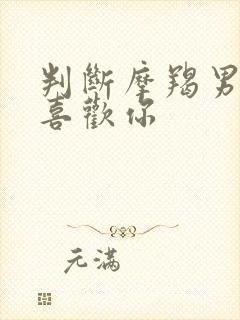 判斷摩羯男
喜歡你
元滿